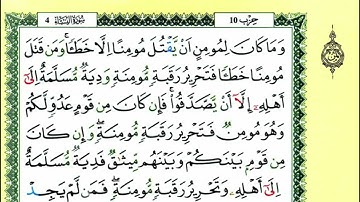 سُورَةُ النِّسَاء 4
حِزْب 10
وَمَا كَانَ لِمُومِنٍ اَنْ يَّقْتُلَ مُومِناً اِلَّا خَطَـٔاٗ وَمَن قَتَلَ
مُومِناً خَطَـٔاٗ فَتَحْرِيرُ رَقَبَةٖ مُّومِنَةٖ وَدِيَةٞ مُّسَلَّمَةٌ اِلَىٰٓ
أَهْلِهِۦٓ إِلَّآ أَنْ يَّصَّدَّقُواْ فَإِن كَانَ مِن قَوْمٍ عَدُوّٖ لَّكُمْ
وَهُوَ مُومِنٞ فَتَحْرِيرُ رَقَبَةٖ مُّومِنَةٖ وَإِن كَانَ
مِن قَوْمِۢ بَيْنَكُمْ وَبَيْنَهُم مِّيثَٰقٞ فَدِيَةٞ مُّسَلَّمَةٌ
اِلَىٰٓ أَهْلِهِۦ وَتَحْرِيرُ رَقَبَةٖ مُّومِنَةٖ فَمَن لَّمْ يَجِدْ